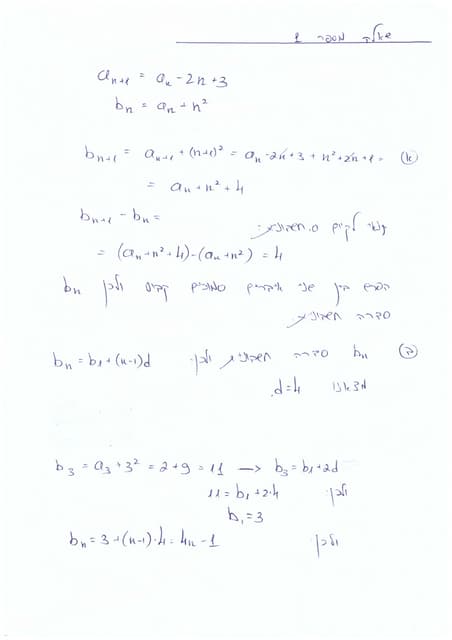 שאלה מספר 1
a_{n+1} = a_n - 2n + 3
b_n = a_n + n²
(א) b_{n+1} = a_{n+1} + (n+1)² = a_n - 2n + 3 + n² + 2n + 1 =
= a_n + n² + 4
b_{n+1} - b_n =
לקיום ס. חשבונית:
= (a_n + n² + 4) - (a_n + n²) = 4
הפרש בין שני איברים סמוכים קבוע ולכן b_n
סדרה חשבונית
(ב) b_n סדרה חשבונית ולכן: b_n = b_1 + (n-1)d
מצאנו d = 4.
b_3 = a_3 + 3² = 2 + 9 = 11 → b_3 = b_1 + 2d
ולכן: 11 = b_1 + 2·4
b_1 = 3
ולכן: b_n = 3 + (n-1)·4 = 4n - 1